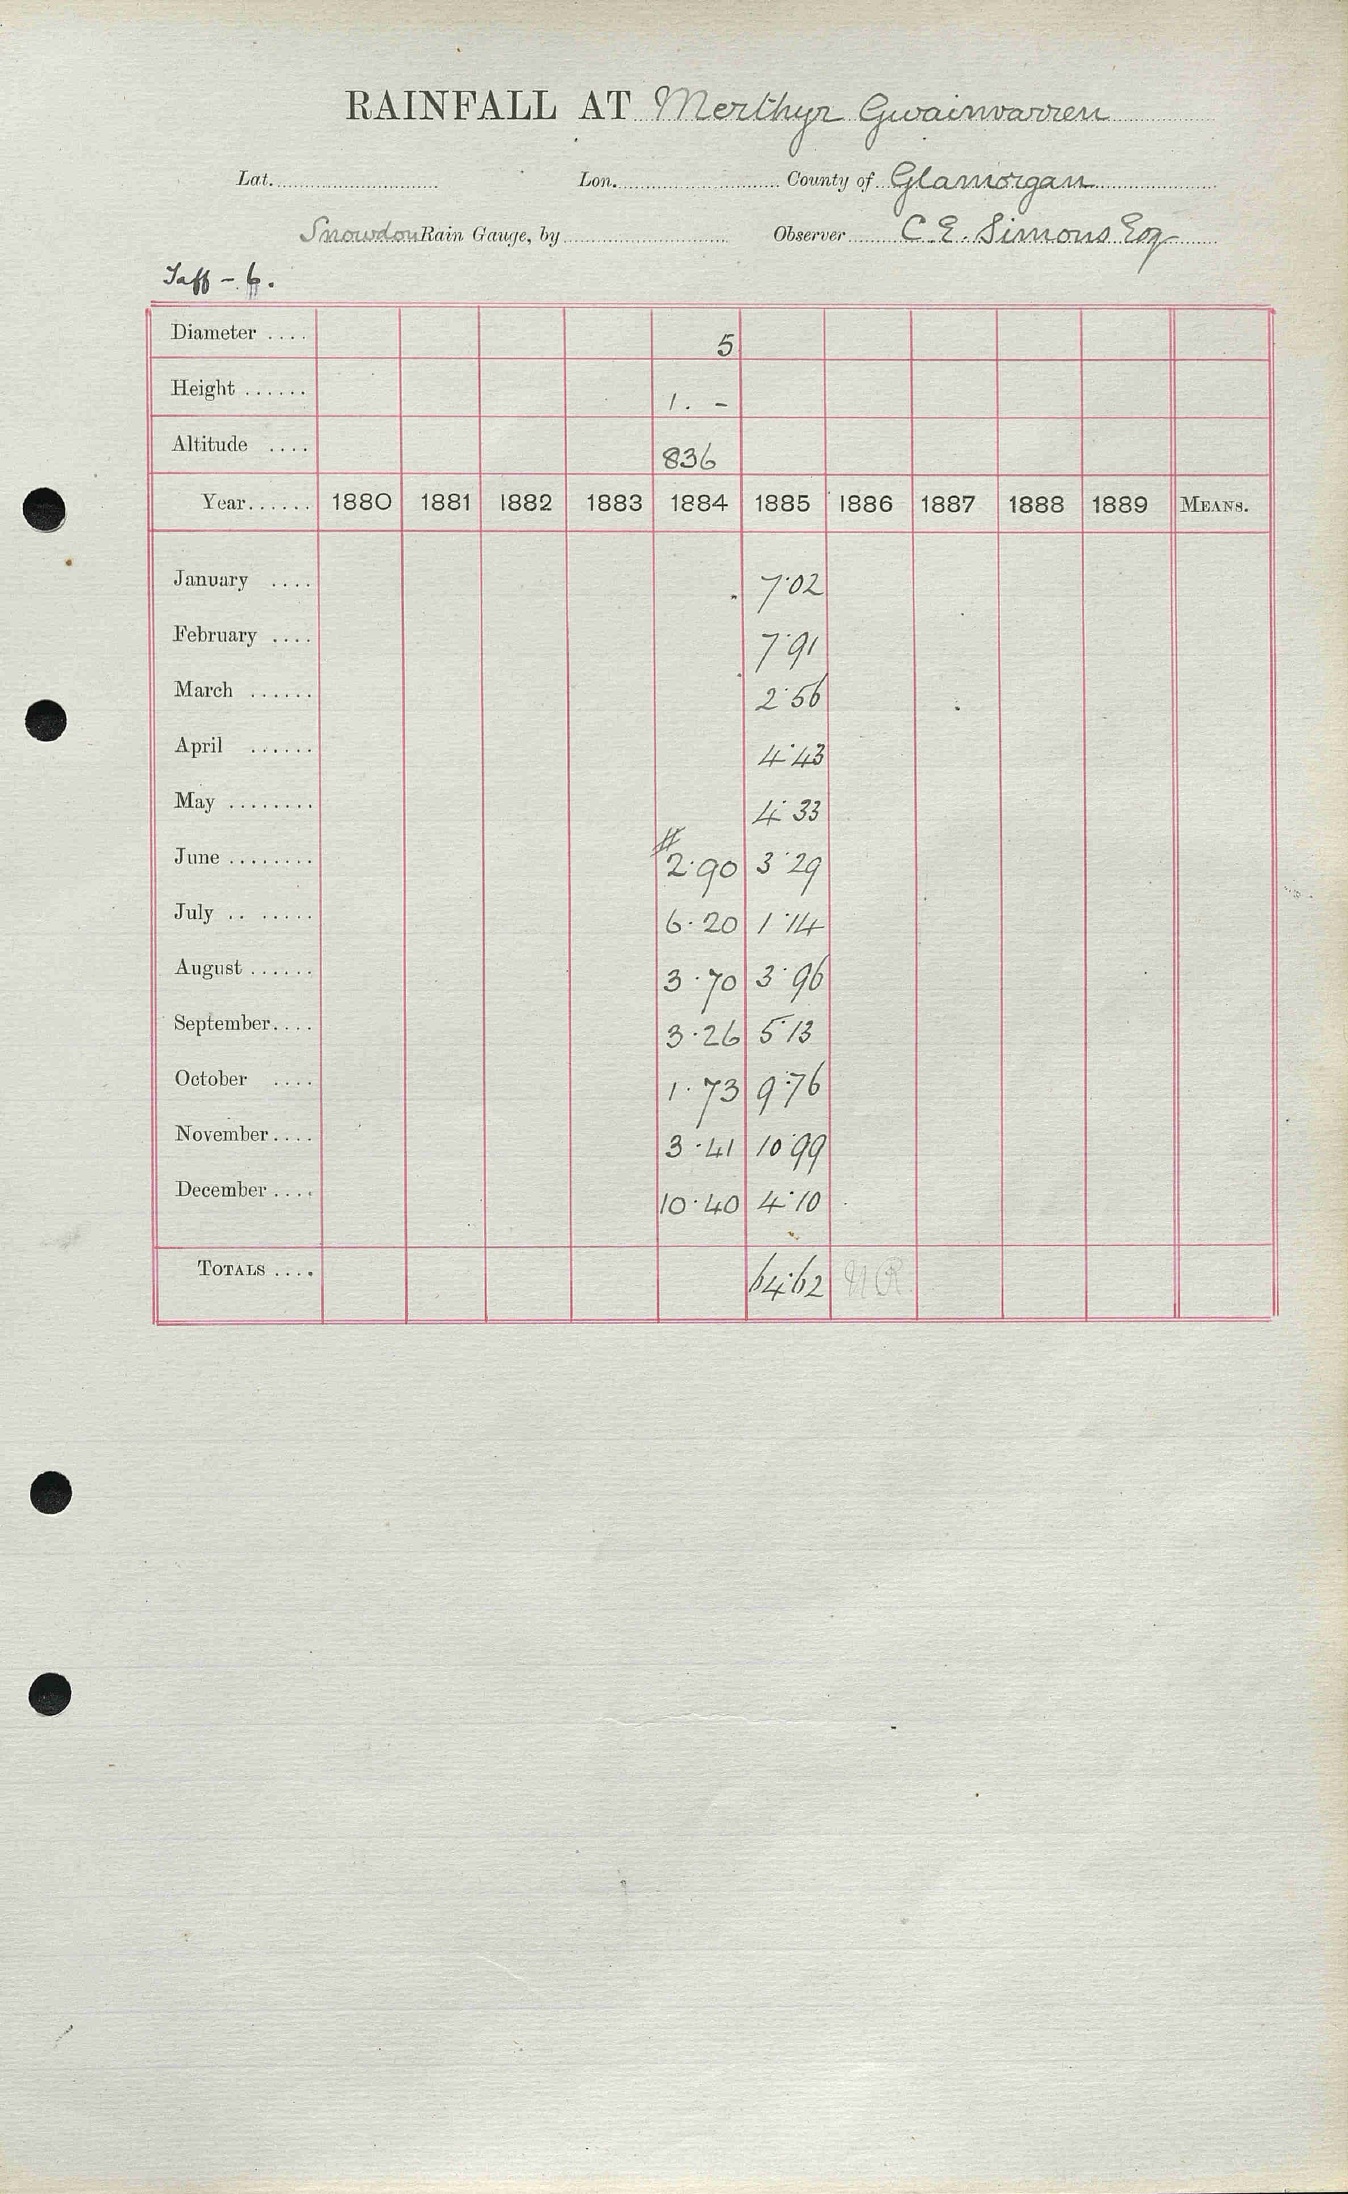 RAINFALL AT Merthyr Gwainwarren
Lat. Lon. County of Glamorgan
Snowdon Rain Gauge, by Observer C. E. Simons Esq
Taff - 6.
Diameter .... 5
Height ...... 1. -
Altitude .... 836
Year...... 1880 1881 1882 1883 1884 1885 1886 1887 1888 1889 MEANS.
January .... 7.02
February .... 7.91
March ...... 2.56
April ...... 4.43
May ........ 4.33
June ........ # 2.90 3.29
July .. ..... 6.20 1.14
August ...... 3.70 3.96
September.... 3.26 5.13
October .... 1.73 9.76
November.... 3.41 10.99
December .... 10.40 4.10
TOTALS .... 64.62 NR.